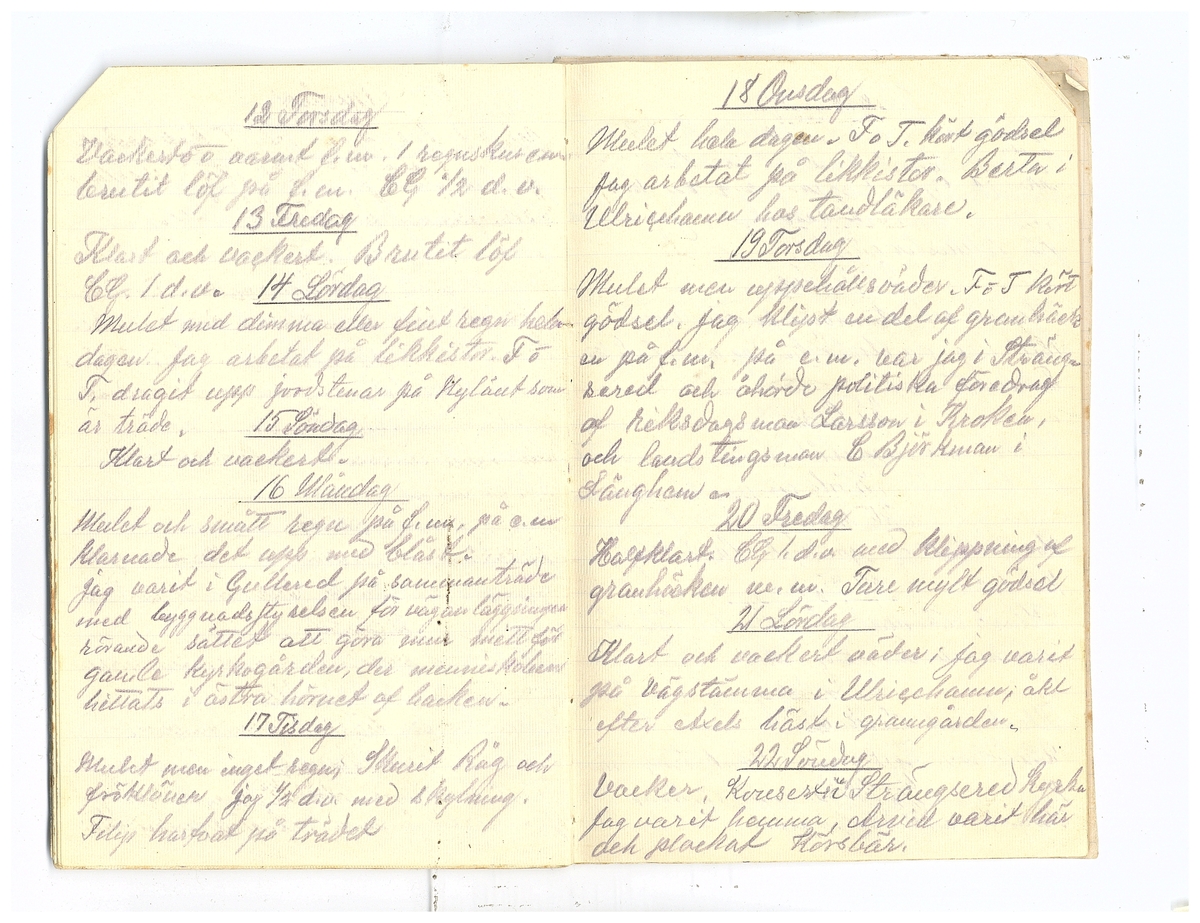 12 Torsdag
Vackert o varmt f.m. 1 regnskur e.m.
brutit löf på f.m. CG 1/2 d.v.
13 Fredag
Klart och vackert. Brutit löf
CG. 1 d.v. 14 Lördag
Mulet med dimma eller fint regn hela
dagen. Jag arbetat på likkistor. F o
T. dragit upp jordstenar på Nylänt som
är träde. 15 Söndag
Klart och vackert.
16 Måndag
Mulet och smått regn på f.m., på e.m
klarnade det upp med blåst.
Jag varit i Gullered på sammanträde
med byggnadsstyrelsen för väganläggningen
rörande sättet att göra mur mett för
gamle kyrkogården, der menniskoben
hittats i östra hörnet af backen.
17 Tisdag
Mulet men inget regn; Skurit Råg och
fröklöver jag 1/2 d.v. med skylning.
Filip harfvat på trädet
18 Onsdag
Mulet hela dagen. F o T. kört gödsel
Jag arbetat på likkistor. Berta i
Ulricehamn hos tandläkare.
19 Torsdag
Mulet men uppehållsväder. F o T kört
gödsel. jag klipt en del af granhäck
en på f.m. på e.m. var jag i Sträng-
sered och åhörde politiska föredrag
af riksdagsman Larsson i Kroken,
och landstingsman C Björkman i
Länghem.
20 Fredag
Halfklart. CG 1 d.v. med klippning af
granhäcken m.m. Ture mylt gödsel
21 Lördag
Klart och vackert väder; jag varit
på Vägstämma i Ulricehamn; åkt
efter Axels häst i granngården.
22 Söndag
Vacker. Konsert i Strängsered Kyrka
Jag varit hemma, Arvid varit här
och plockat Körsbär.